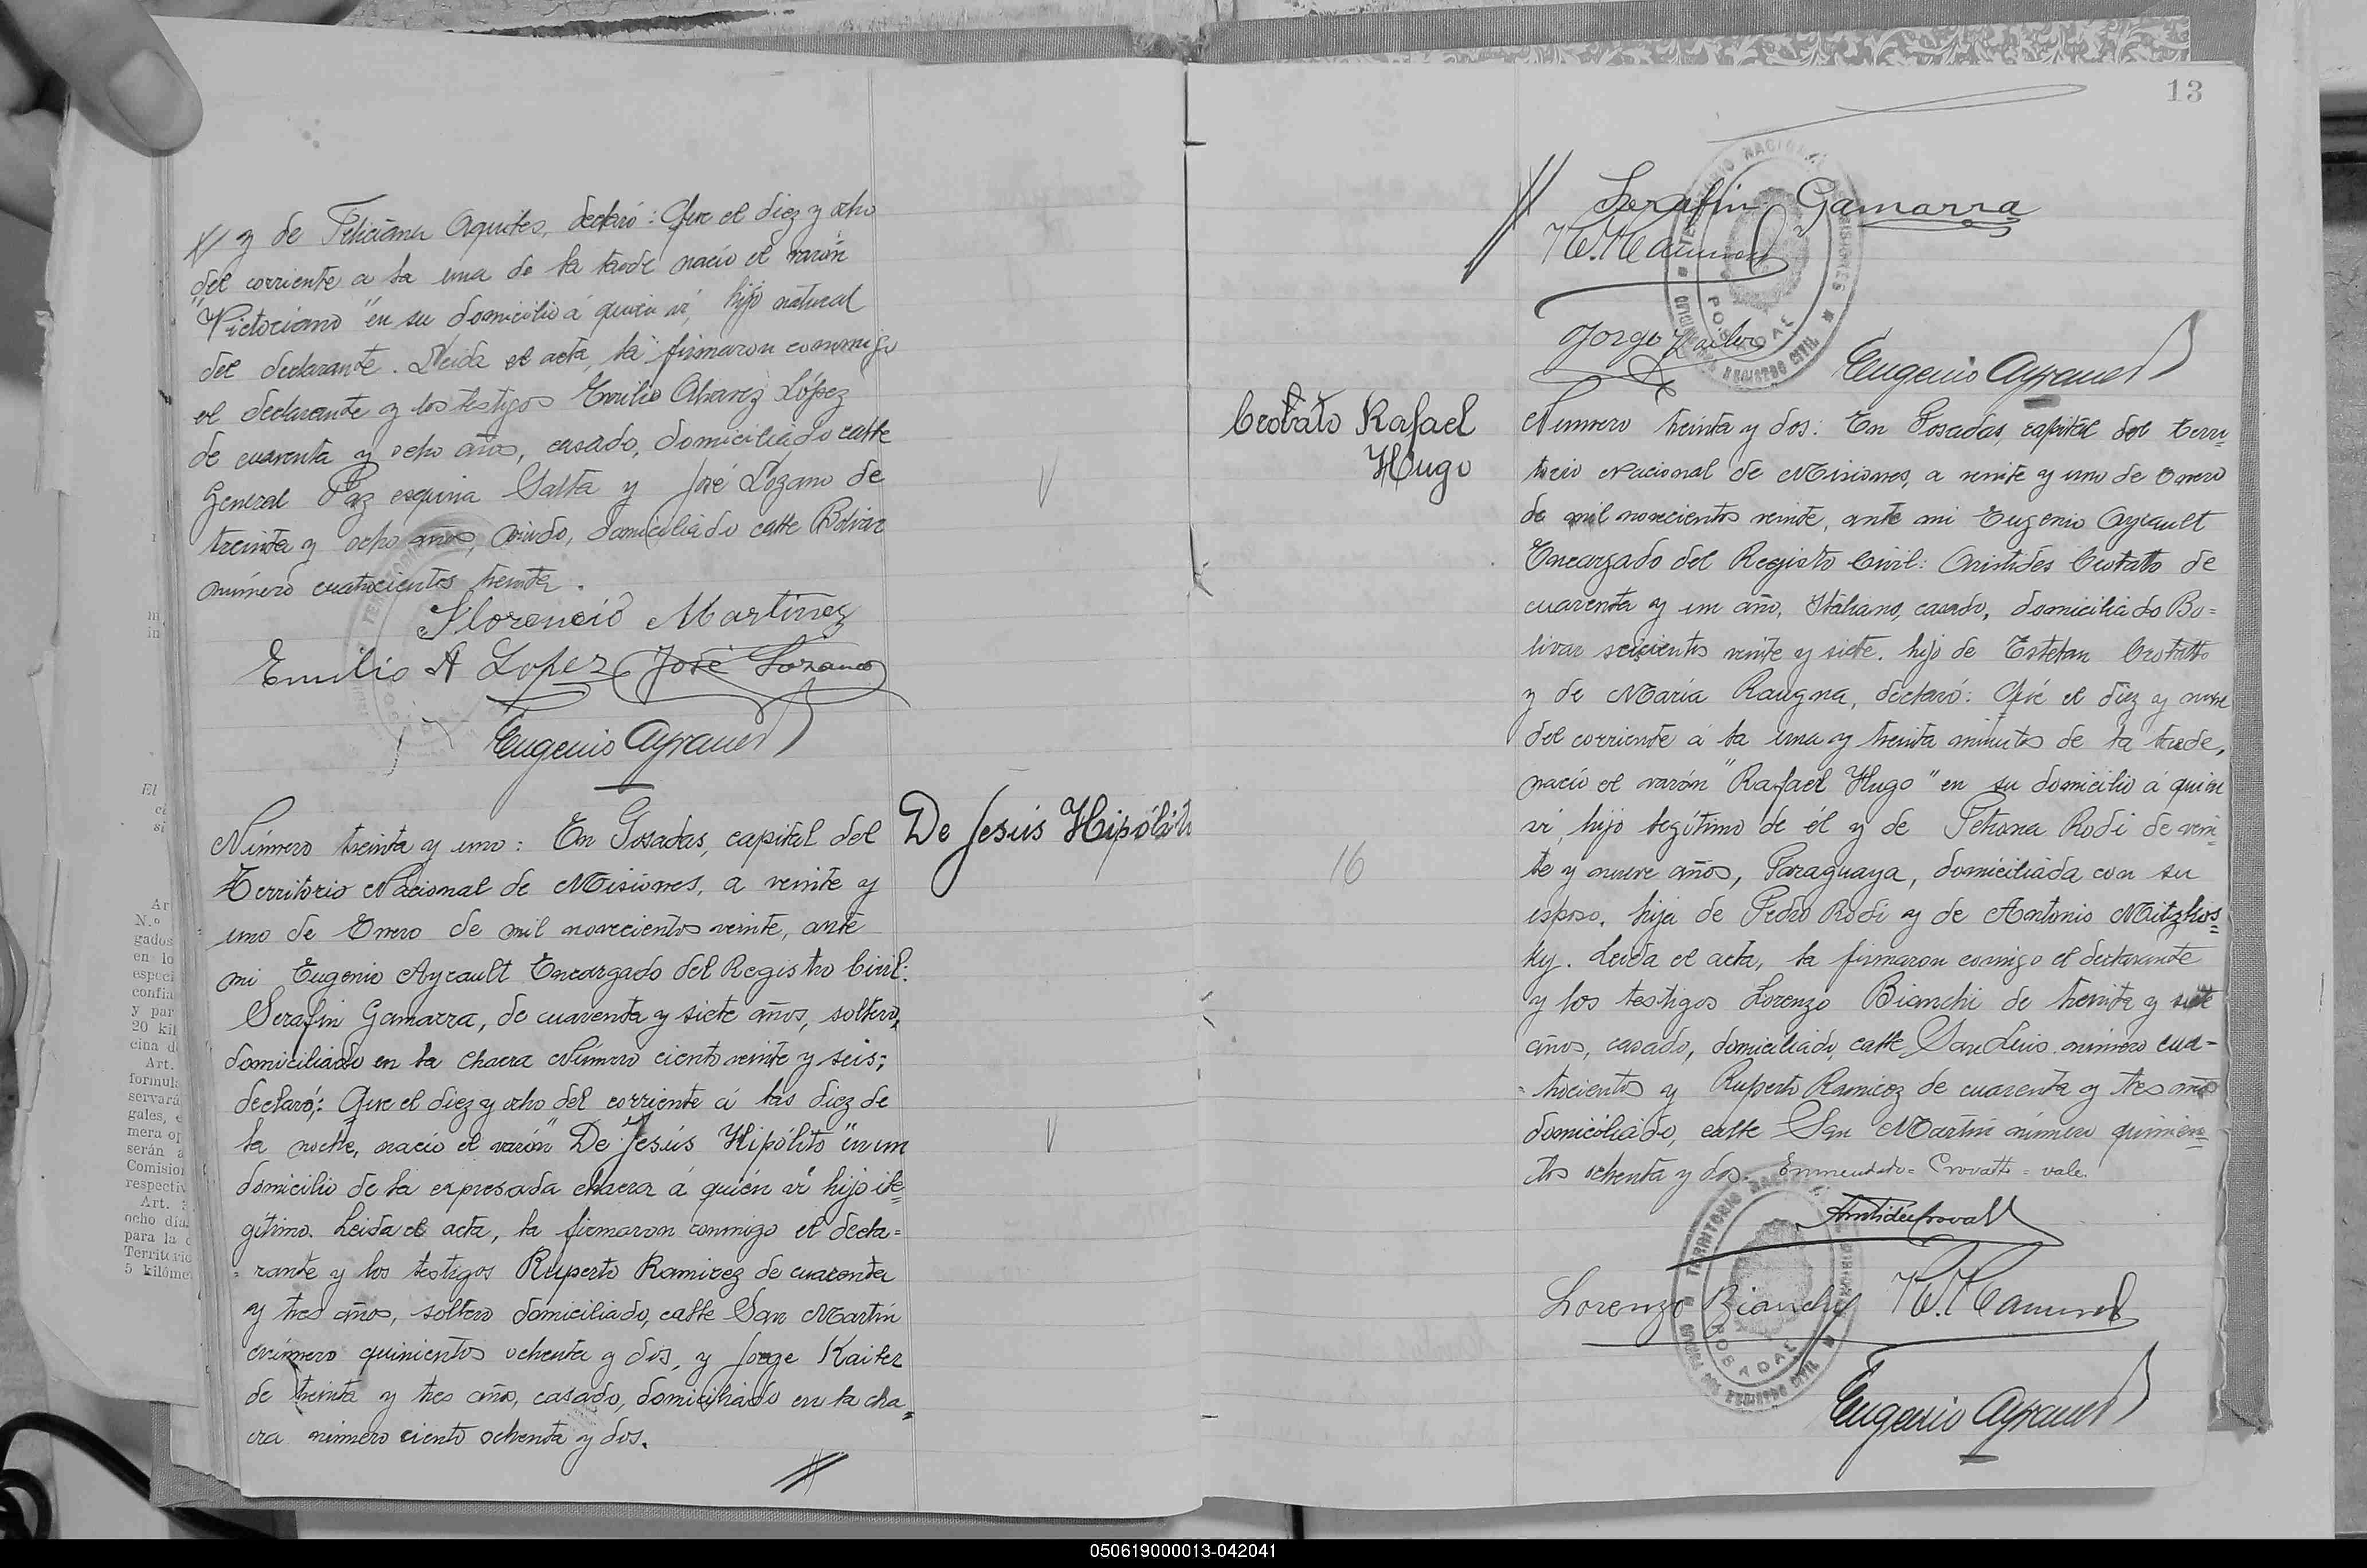 // y de Feliciana Aquites, declaró: Que el diez y ocho
del corriente a la una de la tarde nació el varón
"Victoriano" en su domicilio á quien vi, hijo natural
del declarante. Leida el acta, la firmaron conmigo
el declarante y los testigos Emilio Alvarez López
de cuarenta y ocho años, casado, domiciliado calle
General Paz esquina Salta y José Lozano de
treinta y ocho años, viudo, domiciliado calle Bolivar
número cuatrocientos treinta.
Florencio Martínez
Emilio A Lopez José Lozano
Eugenio Ayrault
De Jesús Hipólito
Número treinta y uno: En Posadas, capital del
Territorio Nacional de Misiones, a veinte y
uno de Enero de mil novecientos veinte, ante
mi Eugenio Ayrault Encargado del Registro Civil:
Serafin Gamarra, de cuarenta y siete años, soltero,
domiciliado en la chacra Número ciento veinte y seis;
declaró: Que el diez y ocho del corriente á las diez de
la noche, nació el varón "De Jesús Hipólito" en un
domicilio de la expresada chacra á quién vi hijo ile=
gítimo. Leida el acta, la firmaron conmigo el decla=
=rante y los testigos Ruperto Ramirez de cuarenta
y tres años, soltero domiciliado, calle San Martín
número quinientos ochenta y dos, y Jorge Kailer
de treinta y tres años, casado, domiciliado en la cha=
cra número ciento ochenta y dos.
//
13
// Serafin Gamarra
Jorge Kailer
Eugenio Ayrault
TERRITORIO NACIONAL DE MISIONES
OFICINA DEL REGISTRO CIVIL
POSADAS
Crobato Rafael
Hugo
16
Número treinta y dos: En Posadas, capital del terri=
torio Nacional de Misiones, a veinte y uno de Enero
de mil novecientos veinte, ante mi Eugenio Ayrault
Encargado del Registo Civil: Aristides Crobatto de
cuarenta y un año, Italiano, casado, domiciliado Bo=
livar seicientos veinte y siete. hijo de Esteban Crobatto
y de María Raugna, declaró: Qué el diez y nueve
del corriente á la una y treinta minutos de la tarde,
nació el varón "Rafael Hugo" en su domicilio á quien
vi, hijo legítimo de él y de Petrona Rodi de vein=
te y nueve años, Paraguaya, domiciliada con su
esposo. hija de Pedro Rodi y de Antonio Mitzkos=
ky. Leida el acta, la firmaron conmigo el declarante
y los testigos Lorenzo Bianchi de treinta y siete
años, casado, domiciliado, calle San Luis número cua-
=trocientos y Ruperto Ramirez de cuarenta y tres años
domiciliado, calle San Martín número quinien=
tos ochenta y dos. Enmendado = Crovatto = vale.
Lorenzo Bianchi
Eugenio Ayrault
TERRITORIO NACIONAL DE MISIONES
OFICINA DEL REGISTRO CIVIL
POSADAS
El
Ar
N.o
gados
en lo
especi
confia
y par
20 kil
cina d
Art.
formula
servará
gales, e
mera op
serán a
Comision
respectiv
Art. 3
ocho día
para la c
Territorio
5 kilóme
050619000013-042041